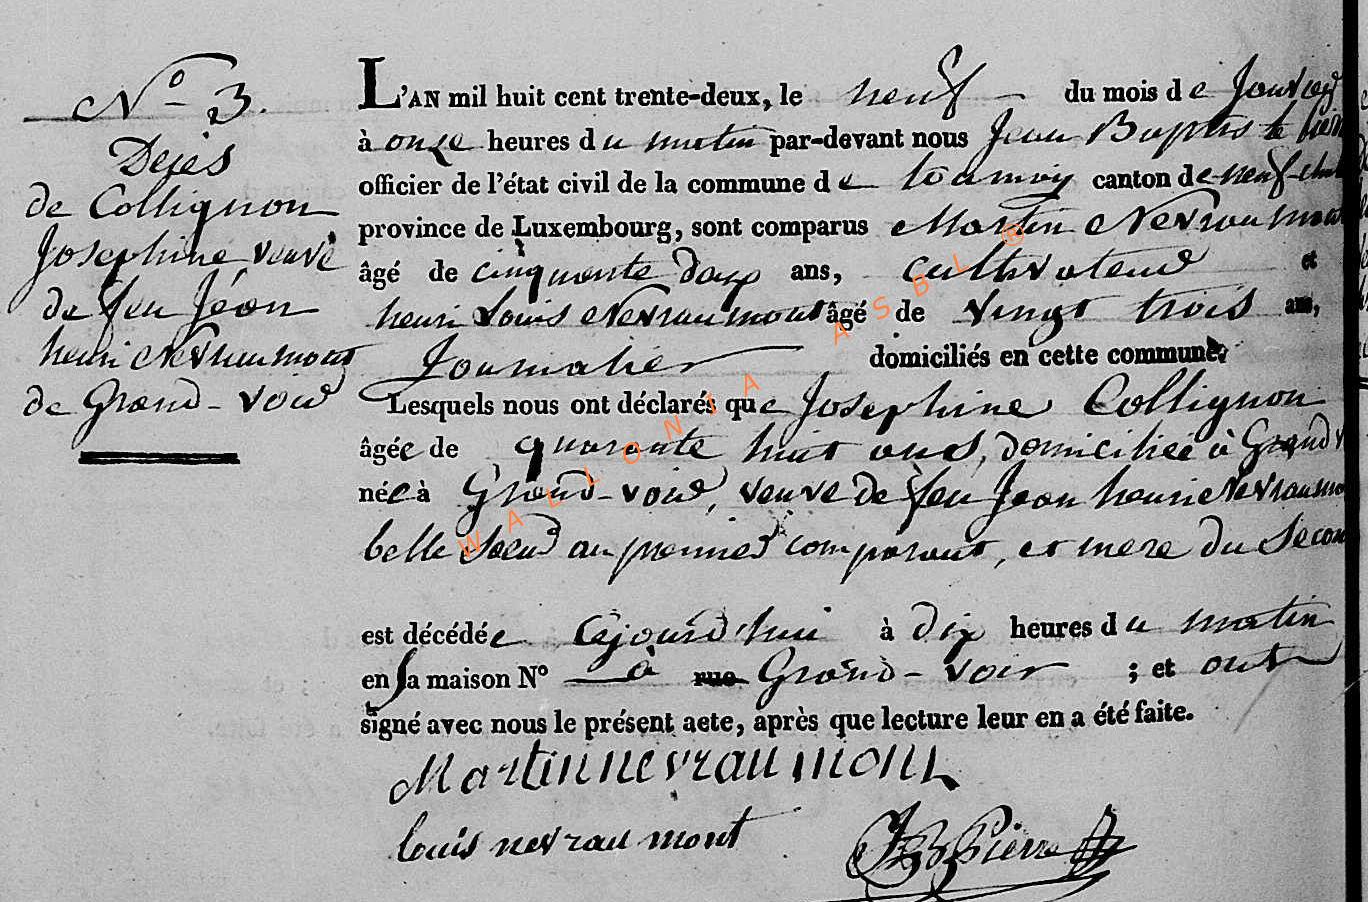 N° 3.
Déçès
de Collignon
Josephine veuve
de feu Jéan
henri Nevraumont
de Grand-voir
L'AN mil huit cent trente-deux, le neuf du mois de Janvier
à onze heures du matin par-devant nous Jean Baptiste
officier de l'état civil de la commune de canton de neuf-chat
province de Luxembourg, sont comparus Martin Nevraumont
âgé de cinquante deux ans, cultivateur et
henri Louis Nevraumont âgé de vingt trois ans,
Journalier domiciliés en cette commune.
Lesquels nous ont déclarés que Josephine Collignon
âgée de quarante huit ans, domiciliée à Grand v
née à Grand-voir, veuve de feu Jean henri Nevraumo
belle Soeur au premier comparant, et mere du Secon
est décédée Cejourd'hui à dix heures du matin
en Sa maison N° — à rue Grand-voir ; et ont
signé avec nous le présent acte, après que lecture leur en a été faite.
Martin nevraumont
louis nevraumont
JB Pierre
WALLONIA ASBL ®